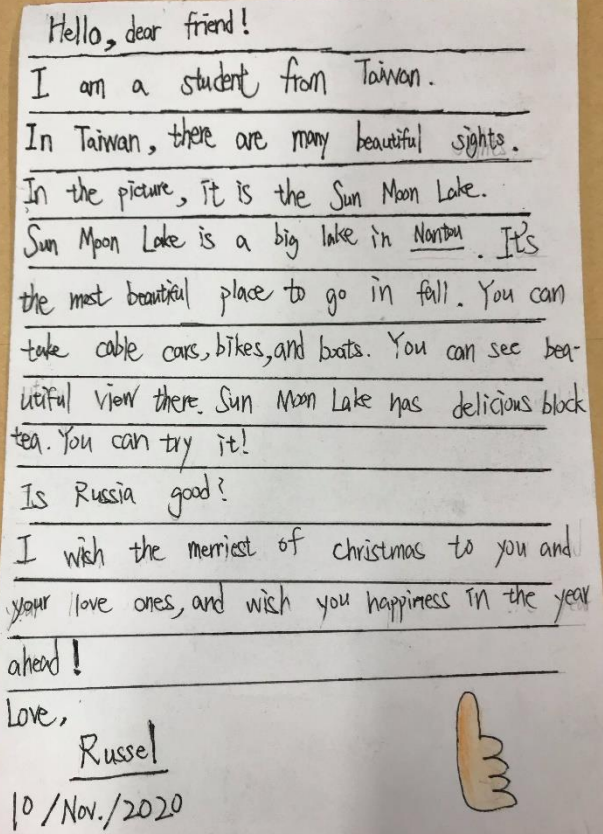 Hello, dear friend!
I am a student from Taiwan.
In Taiwan, there are many beautiful sights.
In the picture, it is the Sun Moon Lake.
Sun Moon Lake is a big lake in Nantou. It's
the most beautiful place to go in fall. You can
take cable cars, bikes, and boats. You can see bea-
utiful view there. Sun Moon Lake has delicious block
tea. You can try it!
Is Russia good?
I wish the merriest of christmas to you and
your love ones, and wish you happiness in the year
ahead!
Love,
Russel
10/Nov./2020